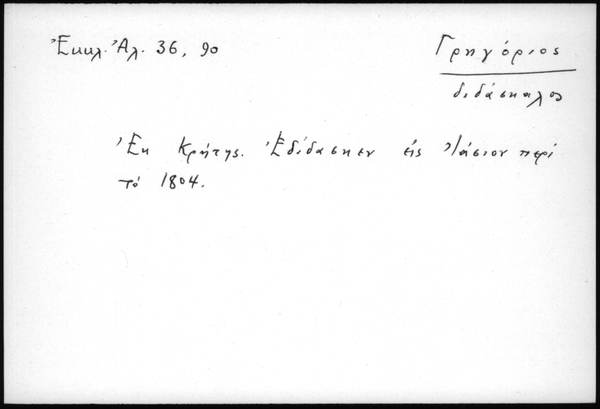 Ἐκκλ. Ἀλ. 36, 90
Γρηγόριος
διδάσκαλος
Ἐκ Κρήτης. Ἐδίδασκεν εἰς Ἰάσιον περὶ
τὸ 1804.